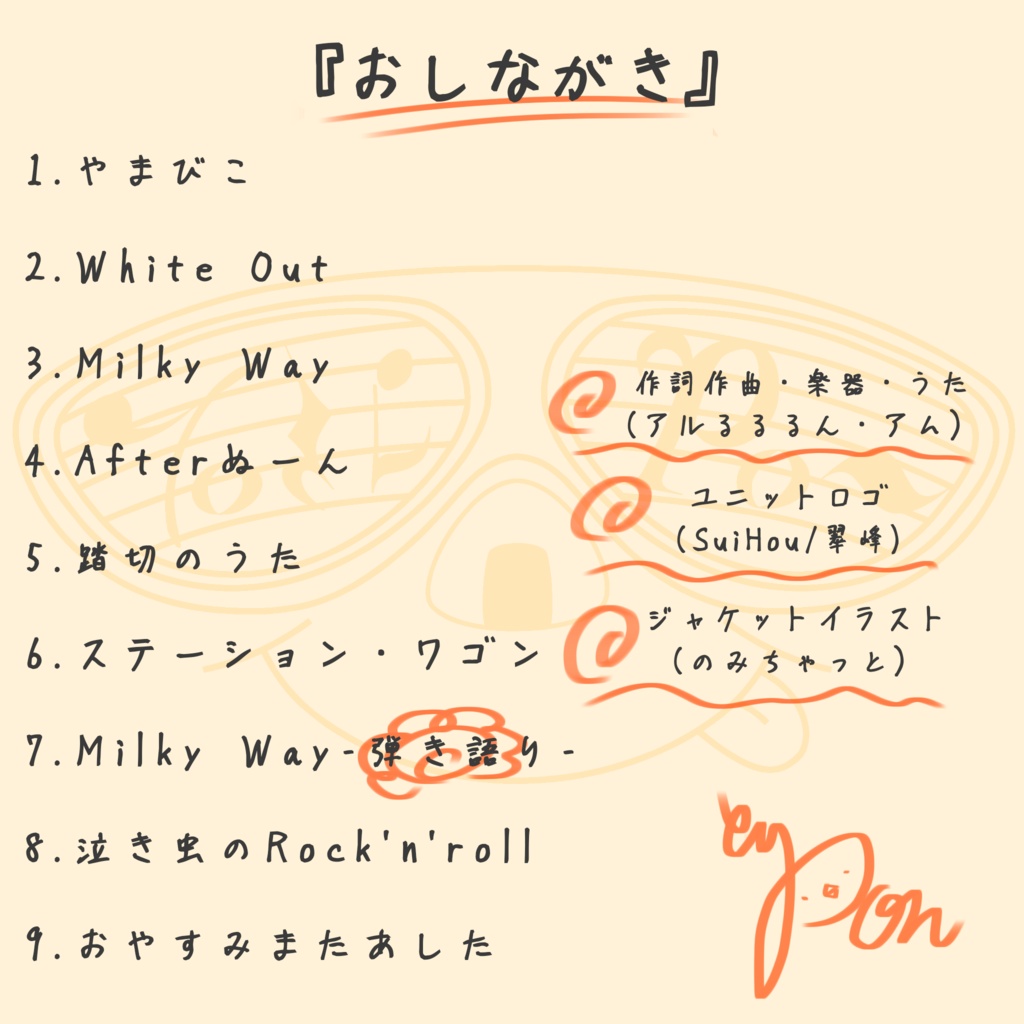 『おしながき』
1.やまびこ
2.White Out
3.Milky Way
4.Afterぬーん
5.踏切のうた
6.ステーション・ワゴン
7.Milky Way-弾き語り-
8.泣き虫のRock'n'roll
9.おやすみまたあした
作詞作曲・楽器・うた
(アルるるるん・アム)
ユニットロゴ
(SuiHou/翠峰)
ジャケットイラスト
(のみちゃっと)